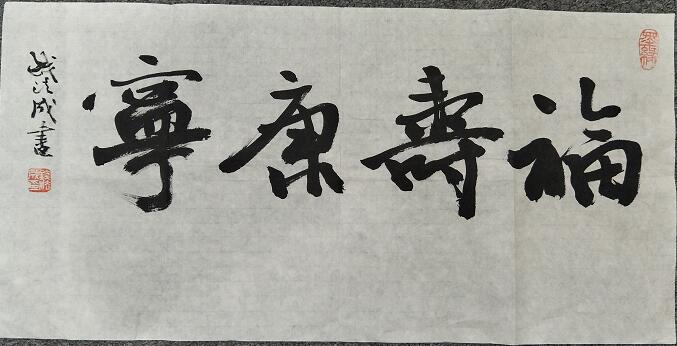 福壽康寧
法成書